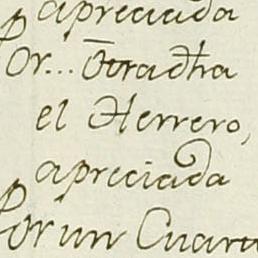 apreciada
Por... otra dha
el Herrero,
apreciada
Por un Cuart